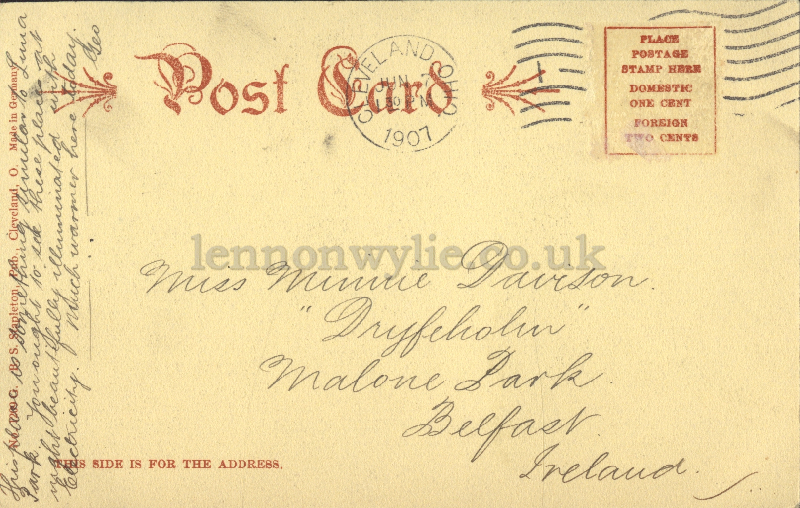 Post Card
CLEVELAND, OHIO
JUN
1907
PLACE
POSTAGE
STAMP HERE
DOMESTIC
ONE CENT
FOREIGN
TWO CENTS
lennonwylie.co.uk
Miss Minnie Davison.
"Dryfeholm"
Malone Park.
Belfast.
Ireland.
THIS SIDE IS FOR THE ADDRESS.
S. Stapleton, Pub. Cleveland, O. Made in Germany
This place is something similar to Luna
Park. You ought to see these places at
night beautifully illuminated with
Electricity. Much warmer here today.
Geo